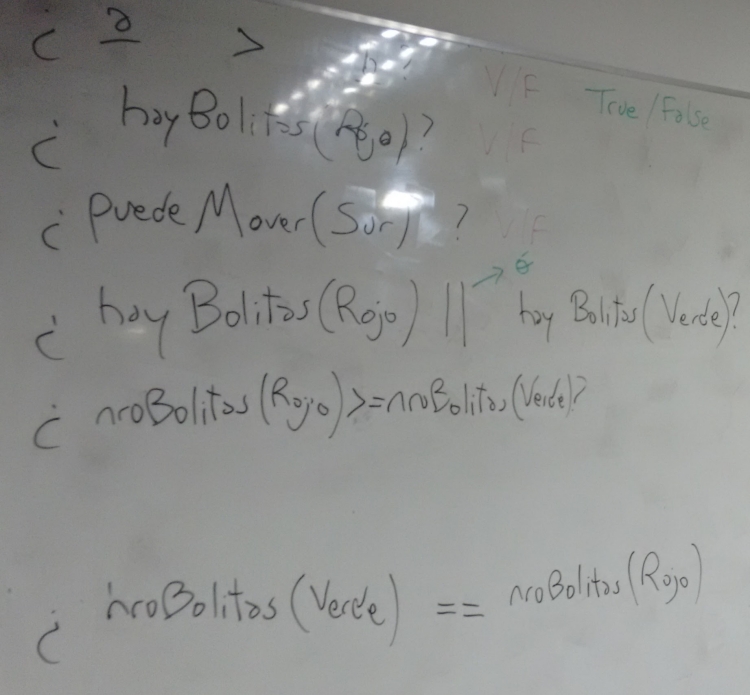 ¿ a > b? V/F True/False
¿ hayBolitas(Rojo)? V/F
¿ puedeMover(Sur)? V/F
¿ hayBolitas(Rojo) || → ó hayBolitas(Verde)?
¿ nroBolitas(Rojo)>=nroBolitas(Verde)?
¿ nroBolitas(Verde) == nroBolitas(Rojo)